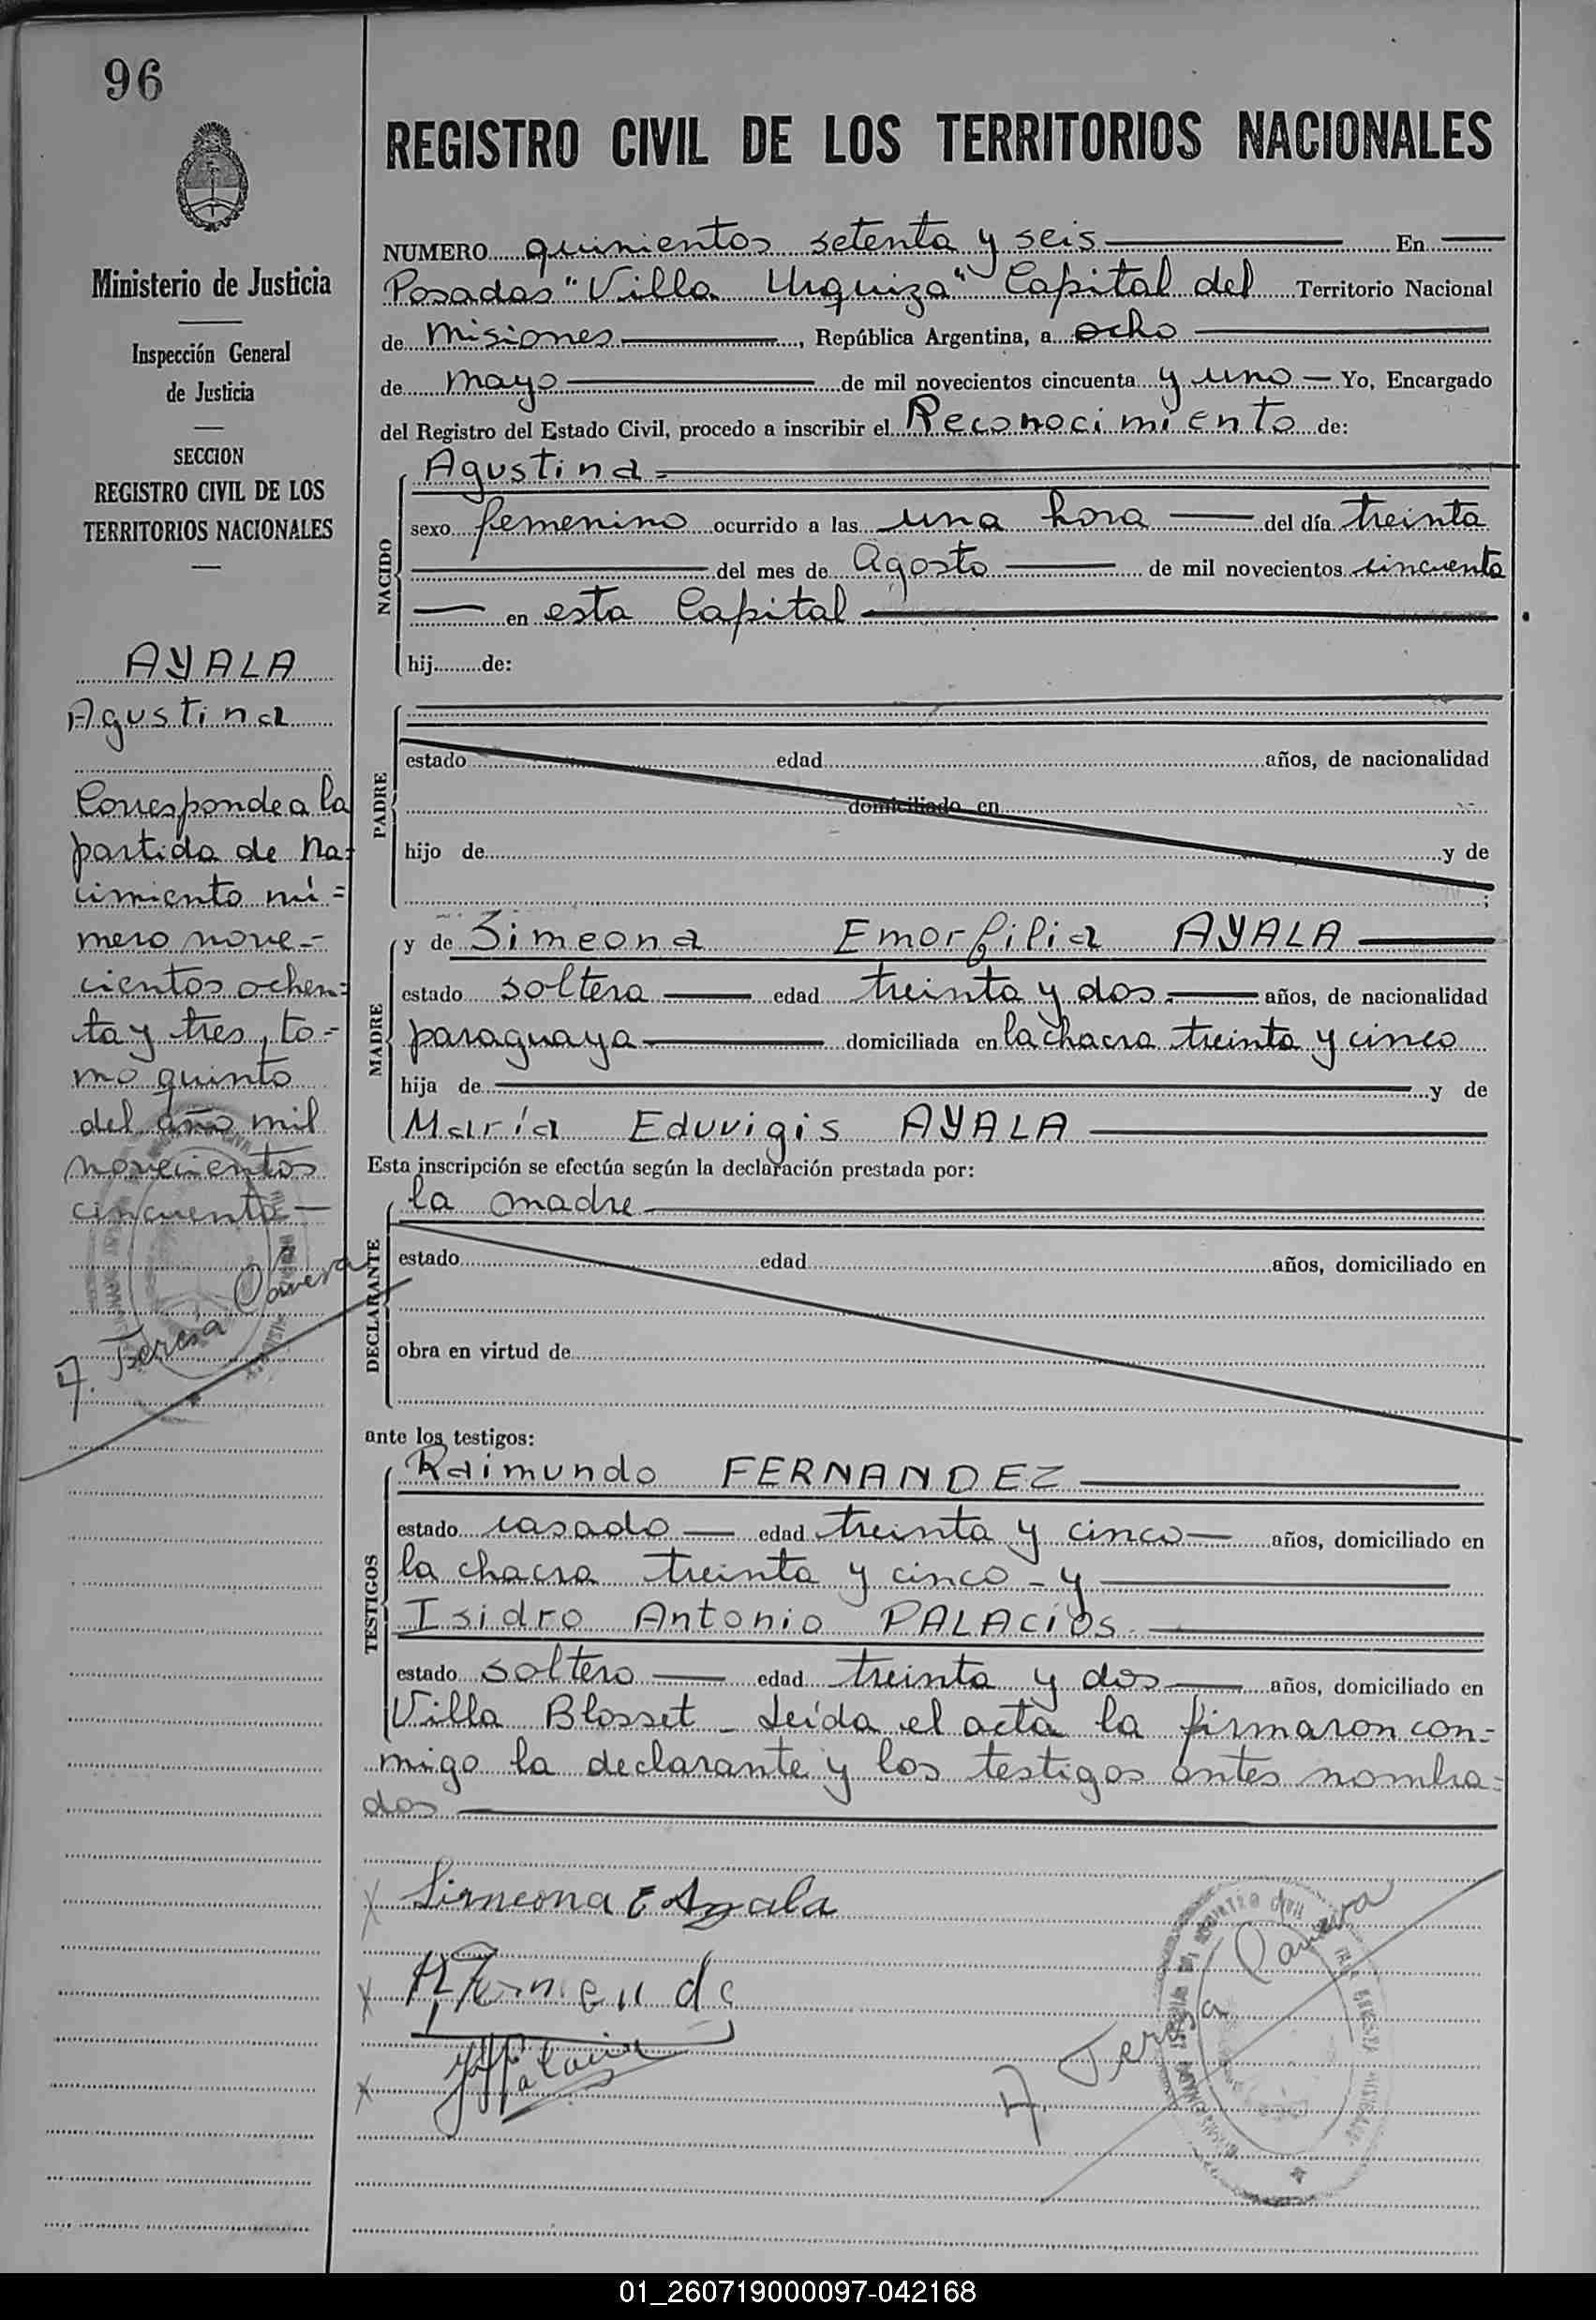 96
Ministerio de Justicia
Inspección General
de Justicia
SECCION
REGISTRO CIVIL DE LOS
TERRITORIOS NACIONALES
AYALA
Agustina
Corresponde a la
partida de Na=
cimiento nú=
mero nove=
cientos ochen=
ta y tres, to=
mo quinto
del año mil
novecientos
cincuenta
A. Teresa
REGISTRO CIVIL DE LOS TERRITORIOS NACIONALES
NUMERO quinientos setenta y seis En
Posadas "Villa Urquiza" Capital del Territorio Nacional
de Misiones, República Argentina, a ocho
de mayo de mil novecientos cincuenta y uno Yo, Encargado
del Registro del Estado Civil, procedo a inscribir el Reconocimiento de:
NACIDO
Agustina
sexo femenino ocurrido a las una hora del día treinta
del mes de Agosto de mil novecientos cincuenta
en esta Capital
hij de:
PADRE
estado edad años, de nacionalidad
domiciliado en
hijo de y de
;
MADRE
y de Simeona Emorfilia AYALA
estado soltera edad treinta y dos años, de nacionalidad
paraguaya domiciliada en la chacra treinta y cinco
hija de y de
María Eduvigis AYALA
Esta inscripción se efectúa según la declaración prestada por:
DECLARANTE
la madre
estado edad años, domiciliado en
obra en virtud de
ante los testigos:
TESTIGOS
Raimundo FERNANDEZ
estado casado edad treinta y cinco años, domiciliado en
la chacra treinta y cinco - y
Isidro Antonio PALACIOS
estado soltero edad treinta y dos años, domiciliado en
Villa Blosset - Leída el acta la firmaron con=
migo la declarante y los testigos antes nombra=
dos
x Simeona E Ayala
x
x
A. Teresa
01_260719000097-042168